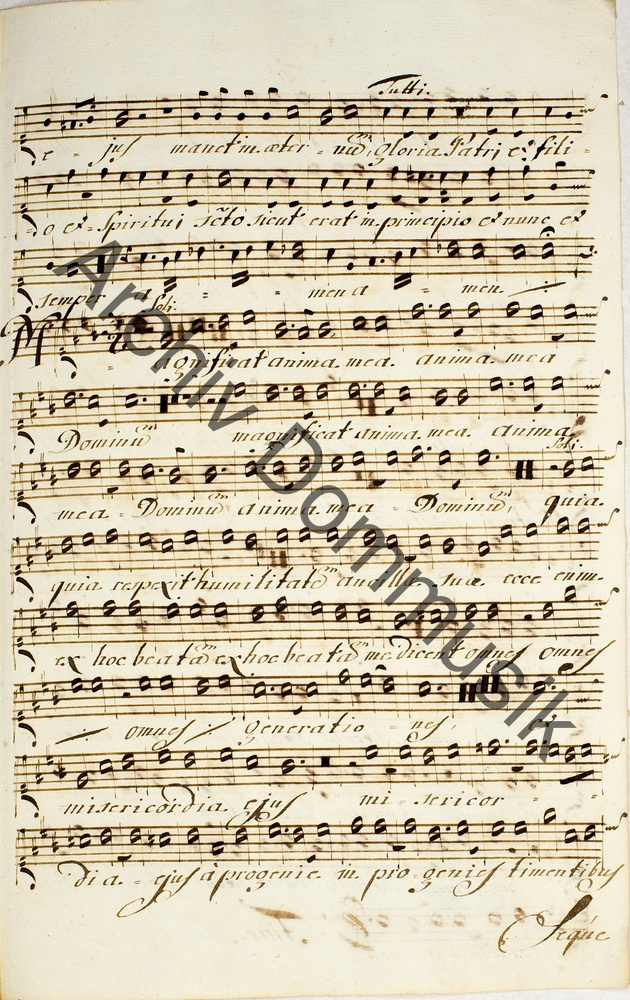 Tutti.
e - jus manet in æter - nũ, gloria Patri et fili -
- o et Spiritui scto sicut erat in principio et nunc et
semper a - - - men a - men.
Soli:
Magnificat anima mea. anima mea
Dominũ magnificat anima mea. anima
Soli:
mea - Dominũ anima mea - Dominũ, quia.
quia respexit humilitatẽ ancillæ suæ ecce enim
ex hoc beatã ex hoc beatã me dicent omnes omnes
omnes generatio - nes, et
misericordia ejus mi - sericor - -
dia - ejus à progenie in pro - genies timentibus
Seque
Archiv Dommusik